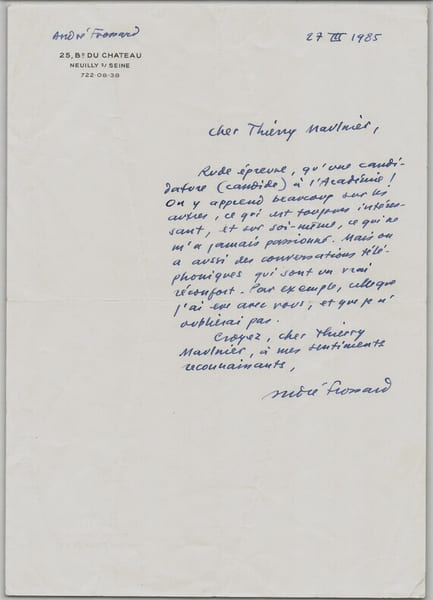 André Frossard
25, Bᴰ DU CHATEAU
NEUILLY S/ SEINE
722-08-38
27 III 1985
Cher Thierry Maulnier,
Rude épreuve, qu'une candi-
dature (candide) à l'Académie !
On y apprend beaucoup sur les
autres, ce qui est toujours intéres-
sant, et sur soi-même, ce qui ne
m'a jamais passionné. Mais on
a aussi des conversations télé-
phoniques qui sont un vrai
réconfort. Par exemple, celle que
j'ai eue avec vous, et que je n'
oublierai pas.
Croyez, cher Thierry
Maulnier, à mes sentiments
reconnaissants,
André Frossard